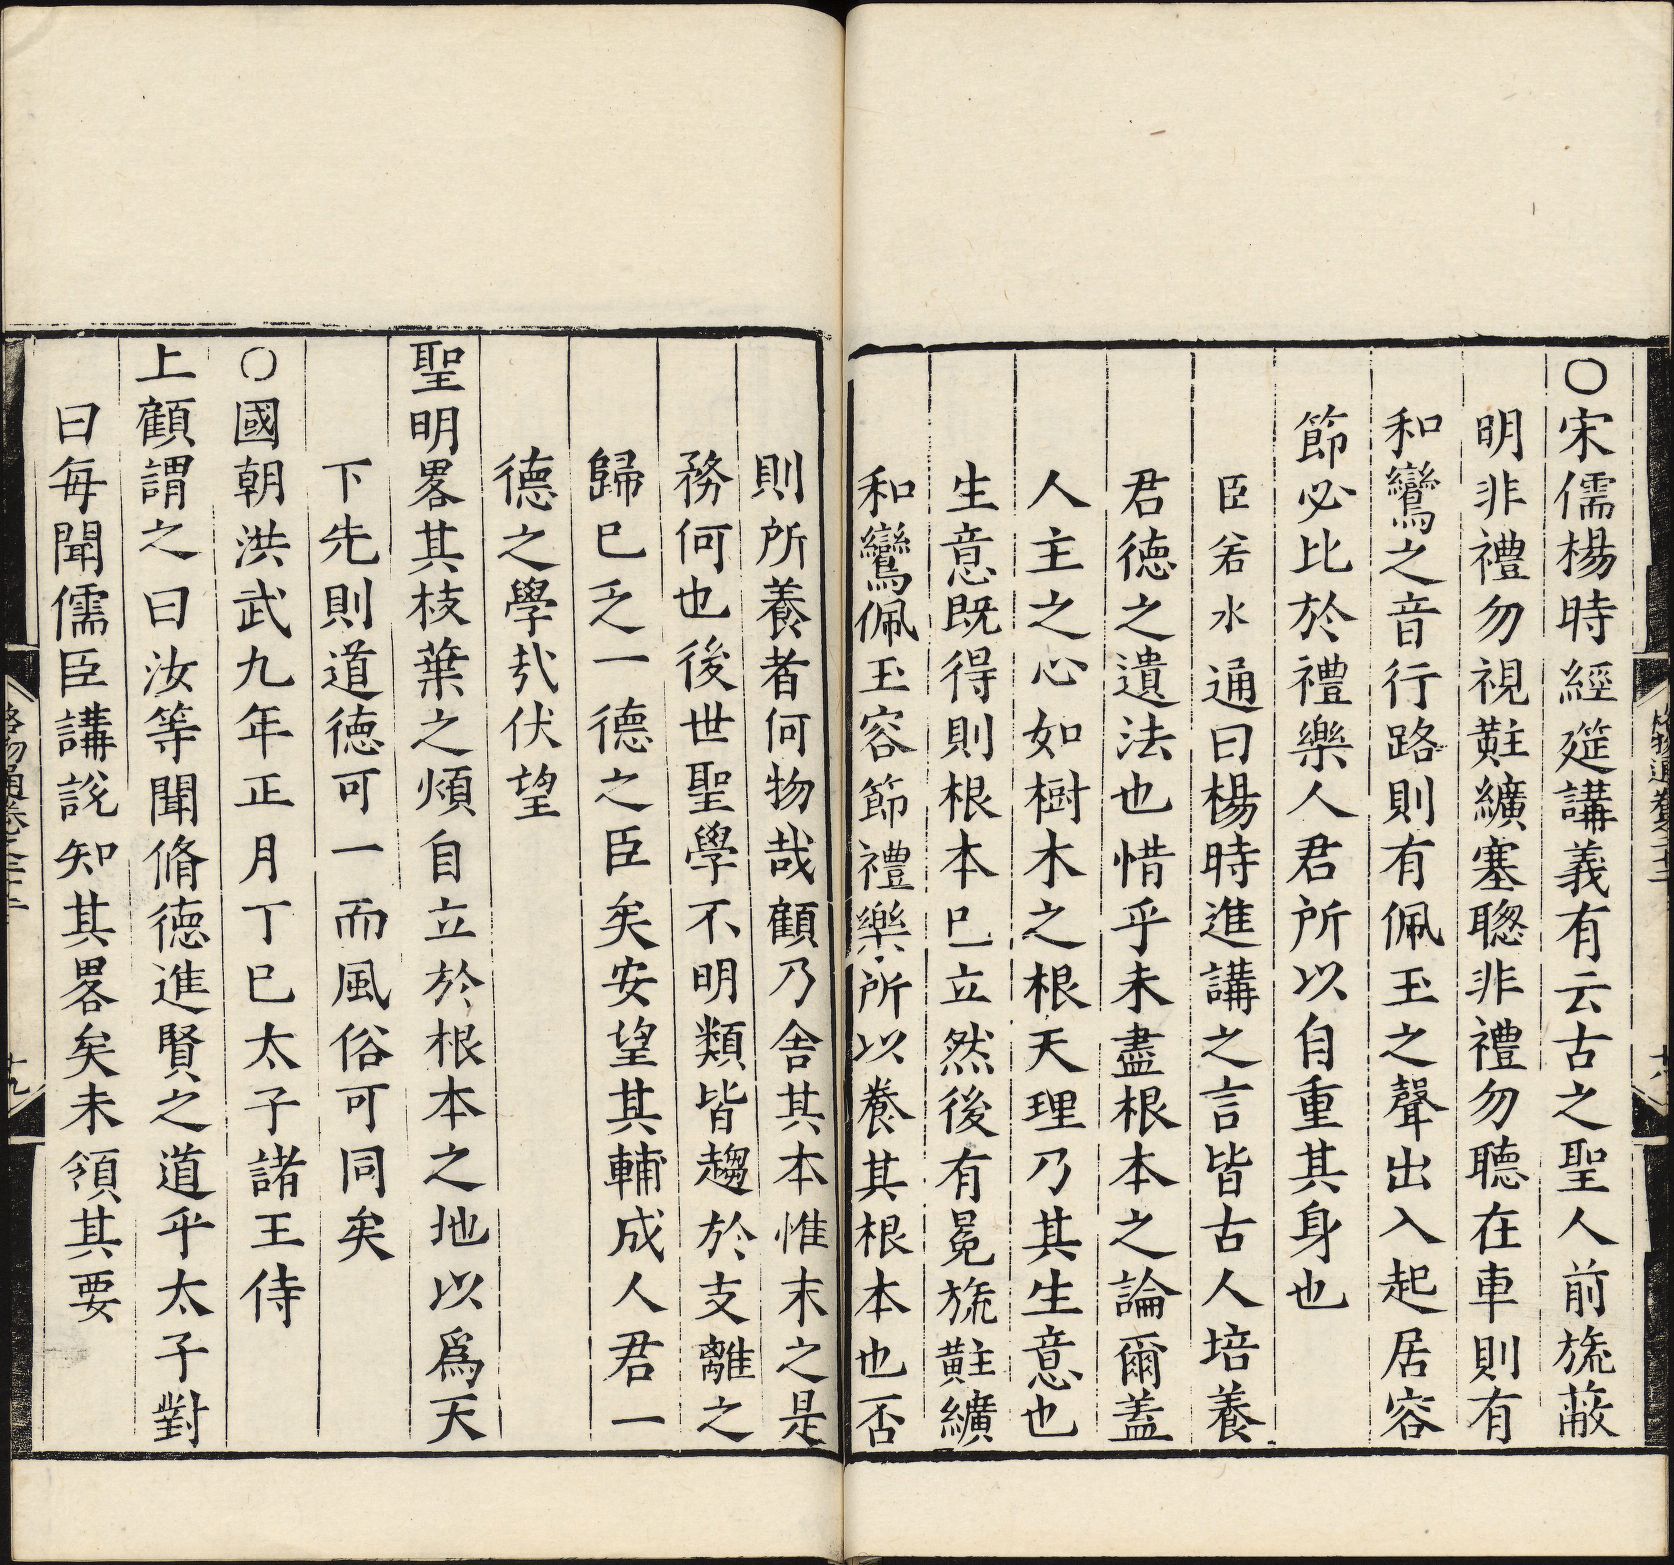 〇宋儒楊時經筵講義有云古之聖人前旒蔽
明非禮勿視黈纊塞聰非禮勿聽在車則有
和鸞之音行路則有佩玉之聲出入起居容
節必比於禮樂人君所以自重其身也
臣若水通曰楊時進講之言皆古人培養
君德之遺法也惜乎未盡根本之論爾蓋
人主之心如樹木之根天理乃其生意也
生意既得則根本已立然後有冕旒黈纊
和鸞佩玉容節禮樂所以養其根本也否
則所養者何物哉顧乃舍其本惟末之是
務何也後世聖學不明類皆趨於支離之
歸已乏一德之臣矣安望其輔成人君一
德之學㢤伏望
聖明畧其枝葉之煩自立於根本之地以爲天
下先則道德可一而風俗可同矣
〇國朝洪武九年正月丁巳太子諸王侍
上顧謂之曰汝等聞脩德進賢之道乎太子對
曰每聞儒臣講說知其畧矣未領其要
格物通卷之二十二
十九